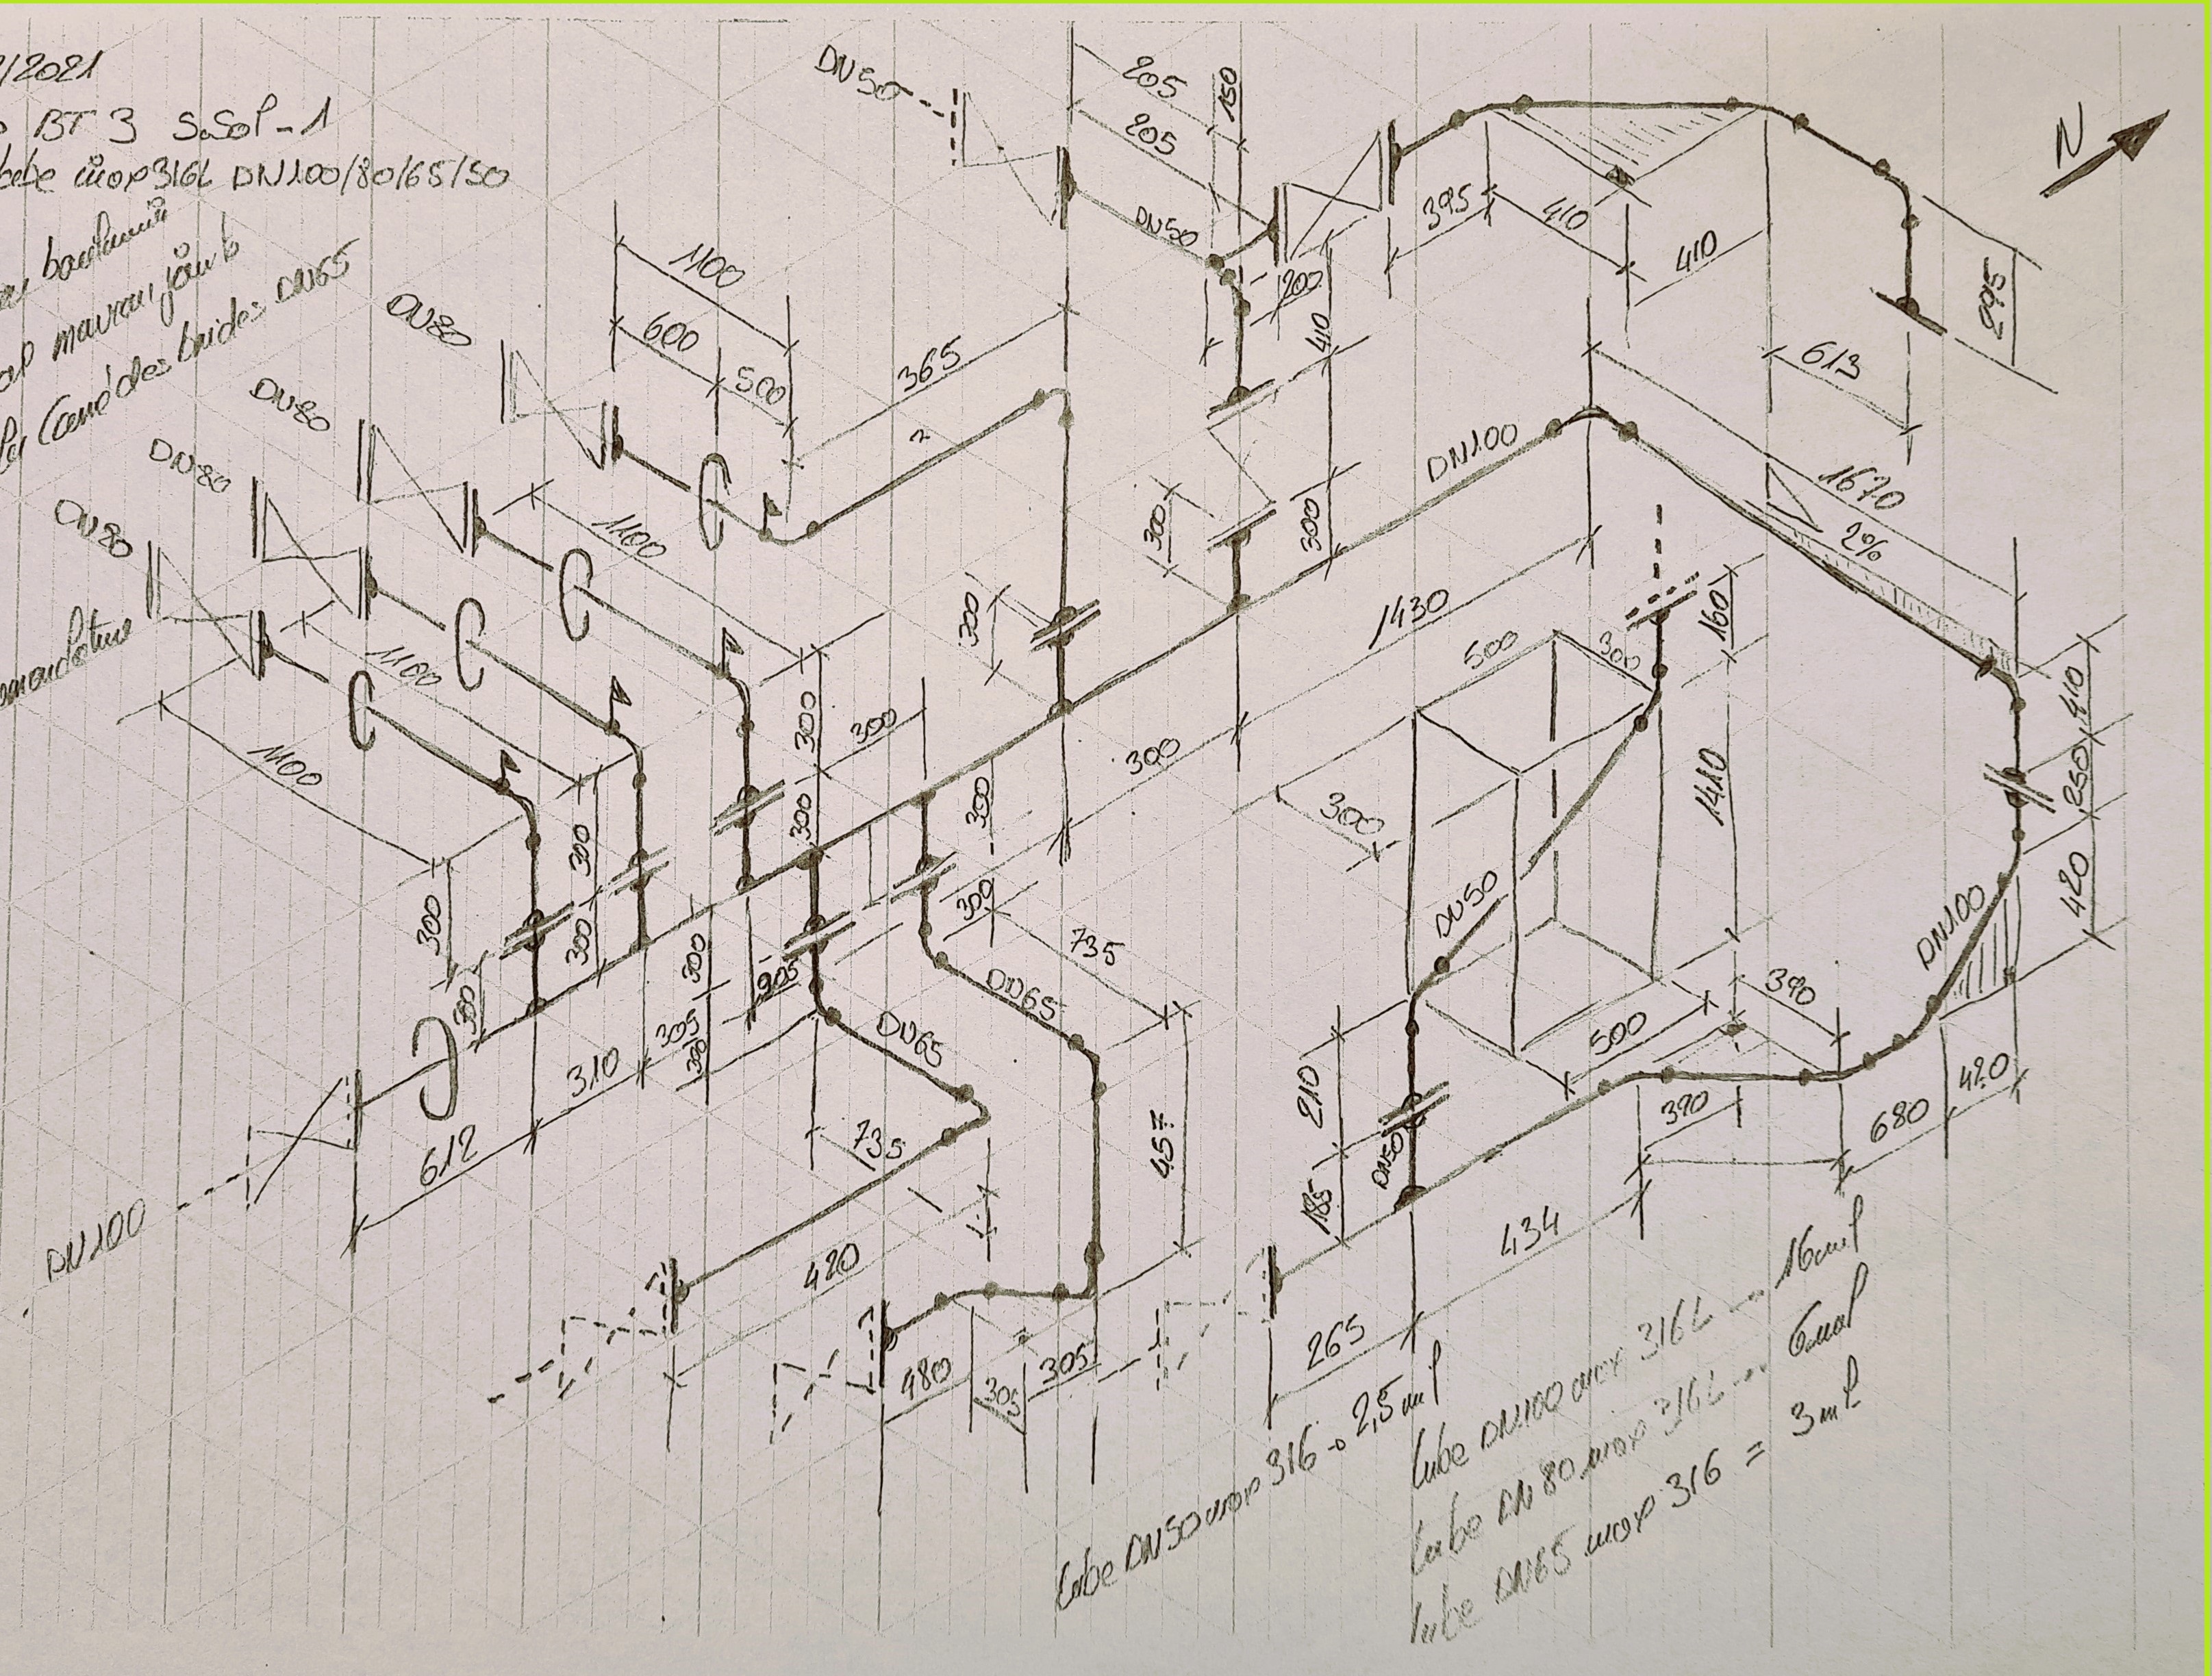 /2021
BT 3 S.Sol-1
inox 316L DN100/80/65/50
des brides DN65
DN50
205
150
205
N
DN50
395
410
410
200
410
295
613
DN80
1100
600
500
365
DN80
DN80
DN80
1100
1100
1100
300
300
300
DN100
1670
2%
1430
300
160
500
300
1410
300
300
300
300
300
300
300
300
300
300
735
410
250
420
DN100
DN50
DN65
DN65
205
305
300
310
612
DN100
735
457
420
480
305
305
210
185
DN50
500
390
390
680
420
434
265
tube DN50 inox 316 → 2,5 ml
tube DN100 inox 316L --- 16ml
tube DN 80 inox 316L --- 6ml
tube DN65 inox 316 = 3ml